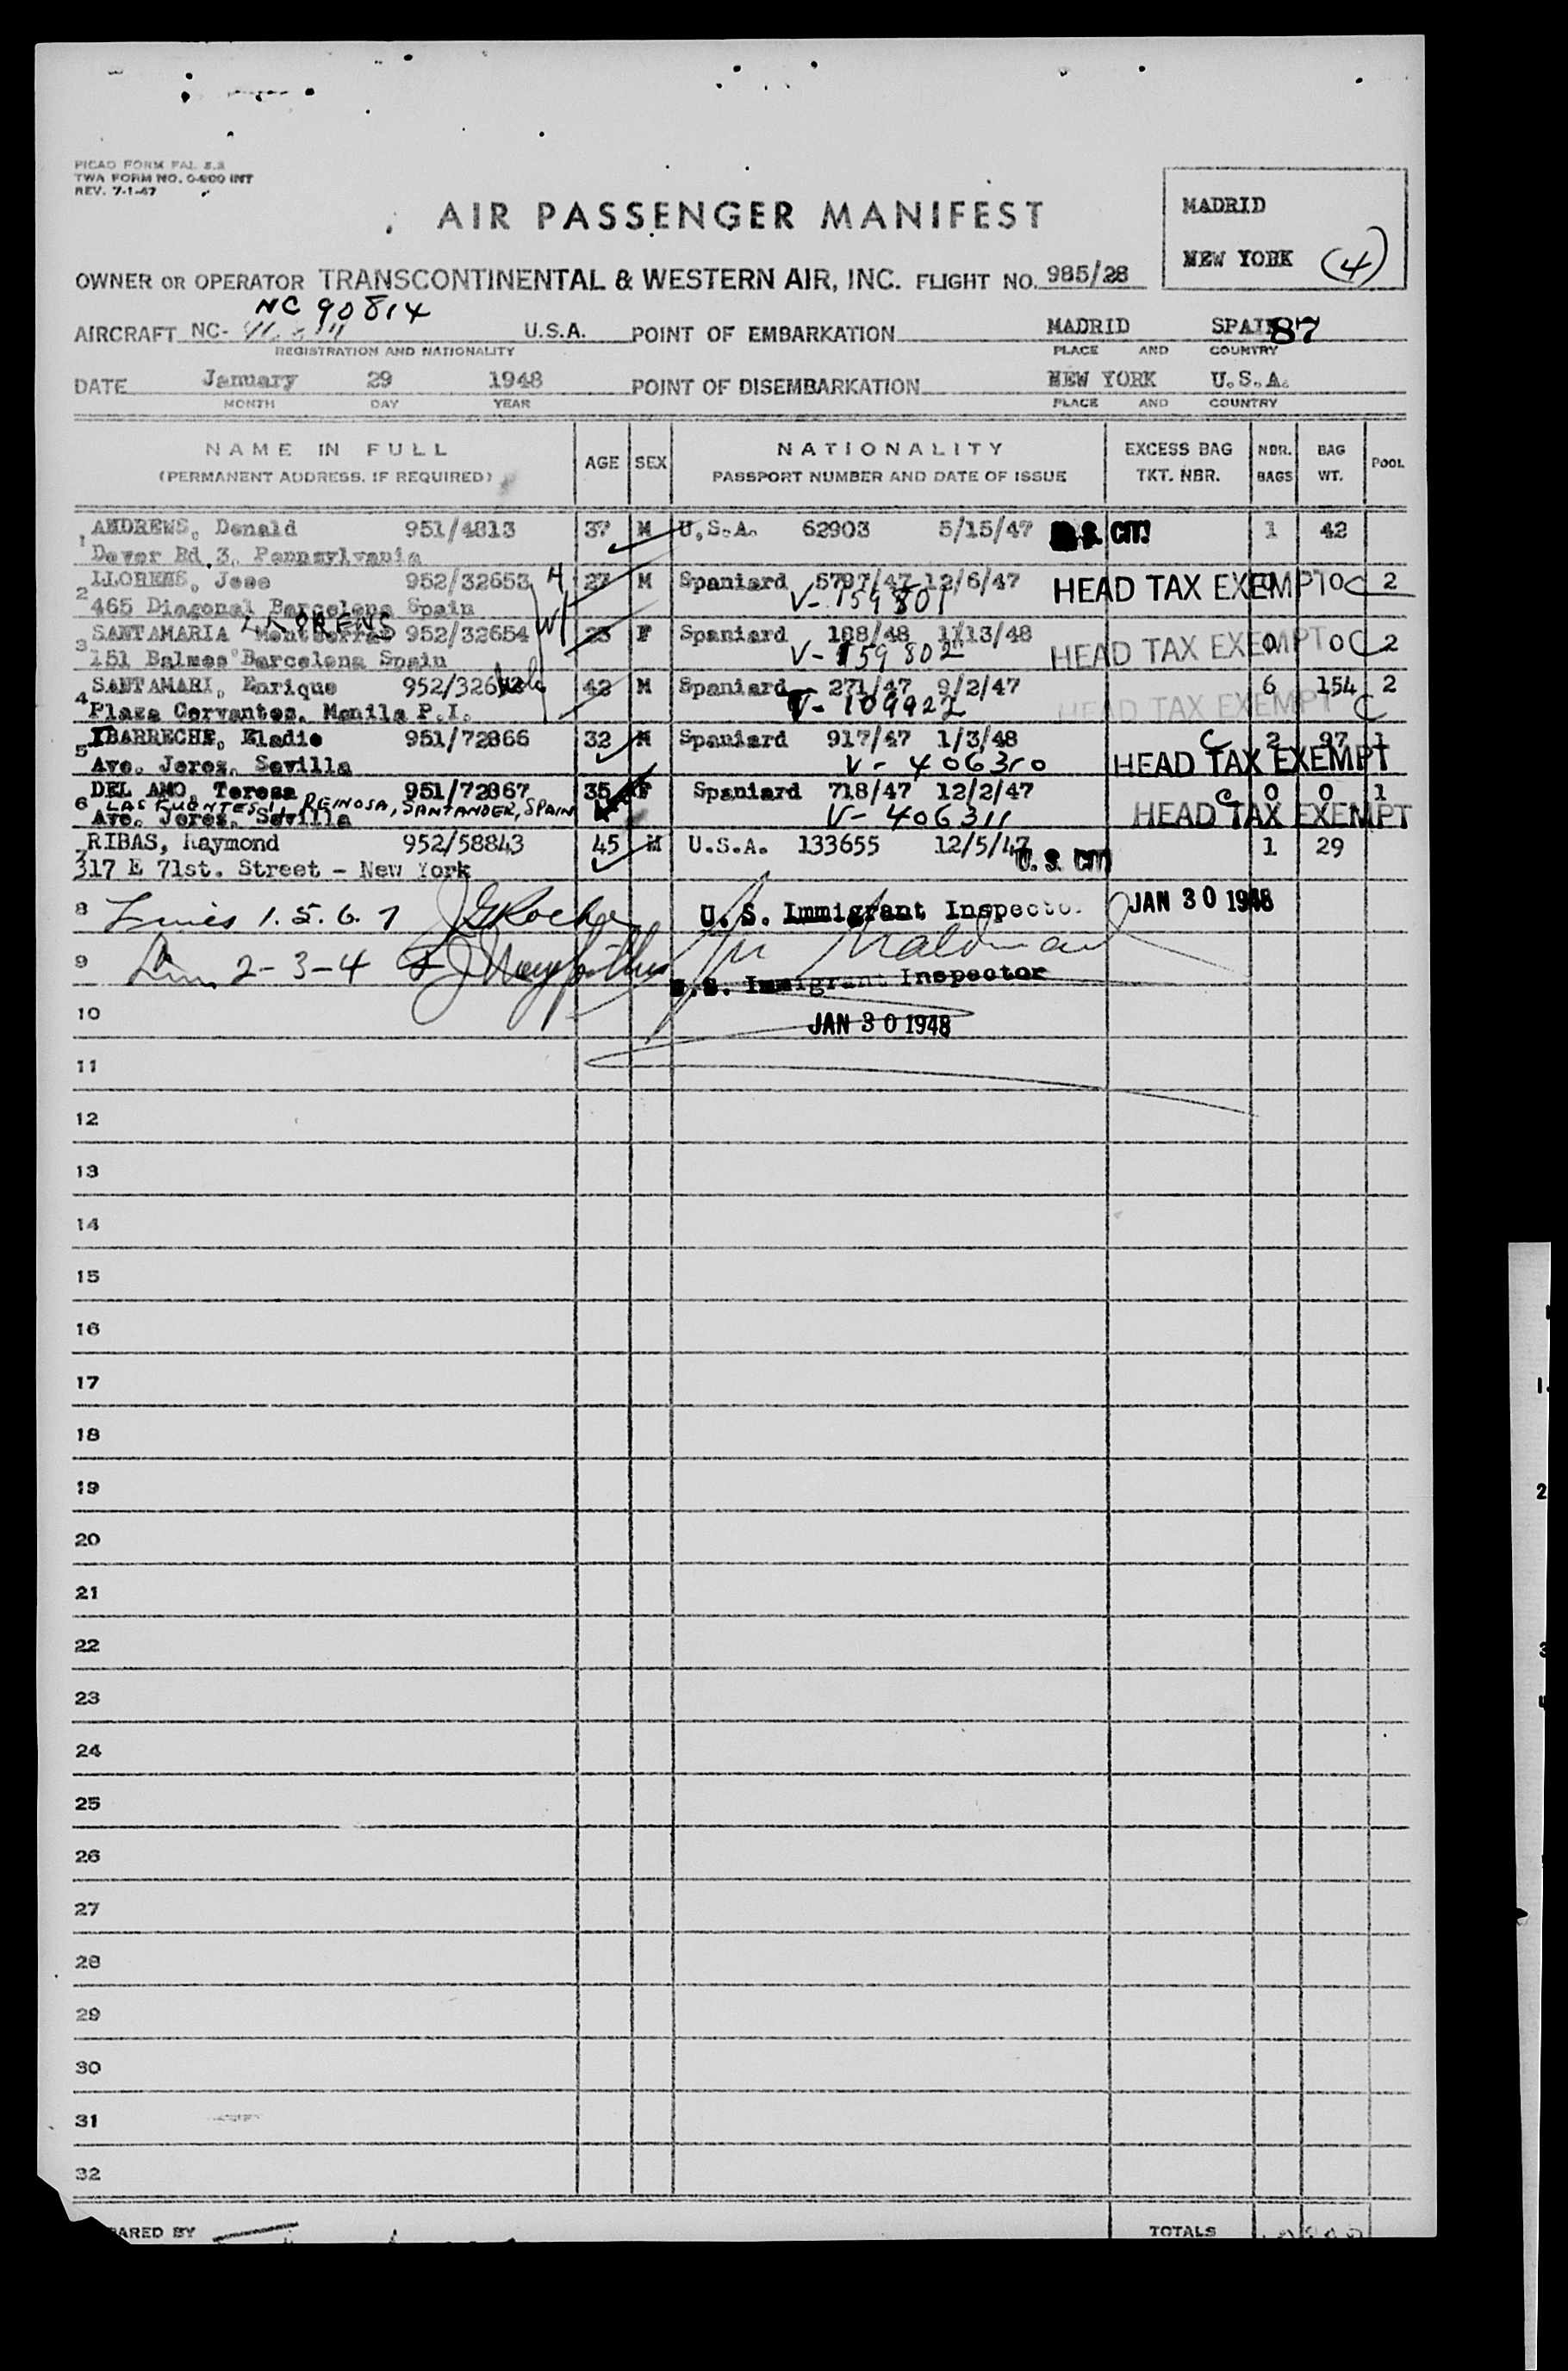 PICAO FORM FAL 2.2
TWA FORM NO. O-900 INT
REV. 7-1-47
AIR PASSENGER MANIFEST
MADRID
NEW YORK (4)
OWNER OR OPERATOR TRANSCONTINENTAL & WESTERN AIR, INC. FLIGHT NO. 985/28
NC 90814
AIRCRAFT NC- U.S.A. POINT OF EMBARKATION MADRID SPAIN 87
REGISTRATION AND NATIONALITY PLACE AND COUNTRY
DATE January 29 1948 POINT OF DISEMBARKATION NEW YORK U.S.A.
MONTH DAY YEAR PLACE AND COUNTRY
NAME IN FULL AGE SEX NATIONALITY EXCESS BAG NBR. BAG POOL
(PERMANENT ADDRESS, IF REQUIRED) PASSPORT NUMBER AND DATE OF ISSUE TKT. NBR. BAGS WT.
1 ANDREWS, Donald 951/4813 37 M U.S.A. 62903 5/15/47 U.S. CIT. 1 42
Dever Rd. 3, Pennsylvania
2 LLORENS, Jose 952/32653 H 27 M Spaniard 5797/47 12/6/47 HEAD TAX EXEMPT 0 0 C 2
465 Diagonal Barcelona Spain V- 159801
LLORENS
3 SANTAMARIA Montserrat 952/32654 W 23 F Spaniard 188/48 1/13/48 HEAD TAX EXEMPT 0 0 C 2
151 Balmes Barcelona Spain V- 159802
4 SANTAMARI, Enrique 952/326 42 M Spaniard 271/47 9/2/47 HEAD TAX EXEMPT 6 154 2
Plaza Cervantes, Manila P.I. V- 109922 C
5 IBARRECHE, Eladio 951/72866 32 M Spaniard 917/47 1/3/48 C 2 97 1
Ave. Jerez, Sevilla V- 406310 HEAD TAX EXEMPT
6 DEL AMO, Teresa 951/72867 35 F Spaniard 718/47 12/2/47 C 0 0 1
LAS FUENTES 1, REINOSA, SANTANDER, SPAIN
Ave. Jerez, Sevilla V- 406311 HEAD TAX EXEMPT
7 RIBAS, Raymond 952/58843 45 M U.S.A. 133655 12/5/47 U.S. CIT. 1 29
317 E 71st. Street - New York
8 Lines 1. 5. 6. 7 U. S. Immigrant Inspector JAN 30 1948
9 2-3-4
U.S. Immigrant Inspector
10 JAN 30 1948
11
12
13
14
15
16
17
18
19
20
21
22
23
24
25
26
27
28
29
30
31
32
PARED BY TOTALS